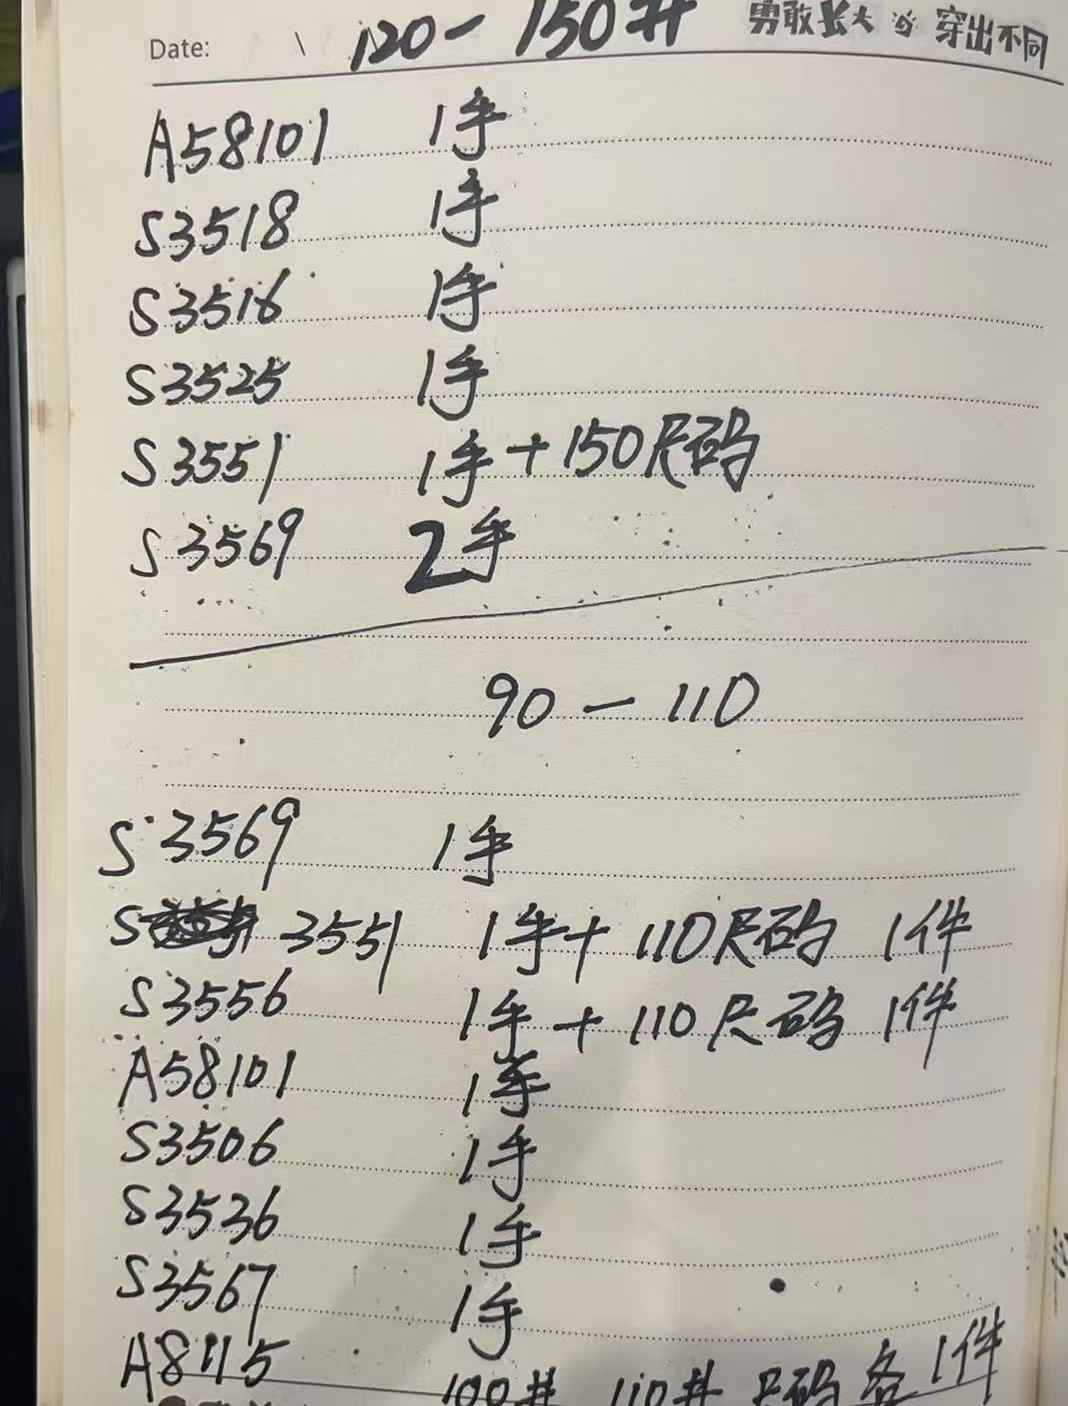 Date: 120-150# 勇敢长大 穿出不同
A58101 1手
S3518 1手
S3516 1手
S3525 1手
S3551 1手+150尺码
S3569 2手
90-110
S3569 1手
S 3551 1手+110尺码 1件
S3556 1手+110尺码 1件
A58101 1手
S3506 1手
S3536 1手
S3567 1手
A8115 100# 110# 尺码各1件